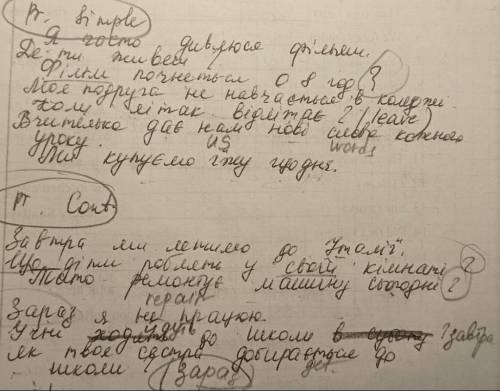 Pr. Simple
Я часто дивлюся фільми.
Де ти живеш
Фільм почнеться о 8 год ?
Моя подруга не навчається в коледжі.
Коли літак відлітає ? (leave)
Вчителька дає нам нові слова кожного
уроку. us words
Ми купуємо їжу щодня.
Pr. Cont.
Завтра ми летимо до Італії.
Що діти роблять у своїй кімнаті ?
Тато ремонтує машину сьогодні ?
repair
Зараз я не працюю.
Учні йдуть до школи завтра
як твоя сестра добирається до
школи зараз get